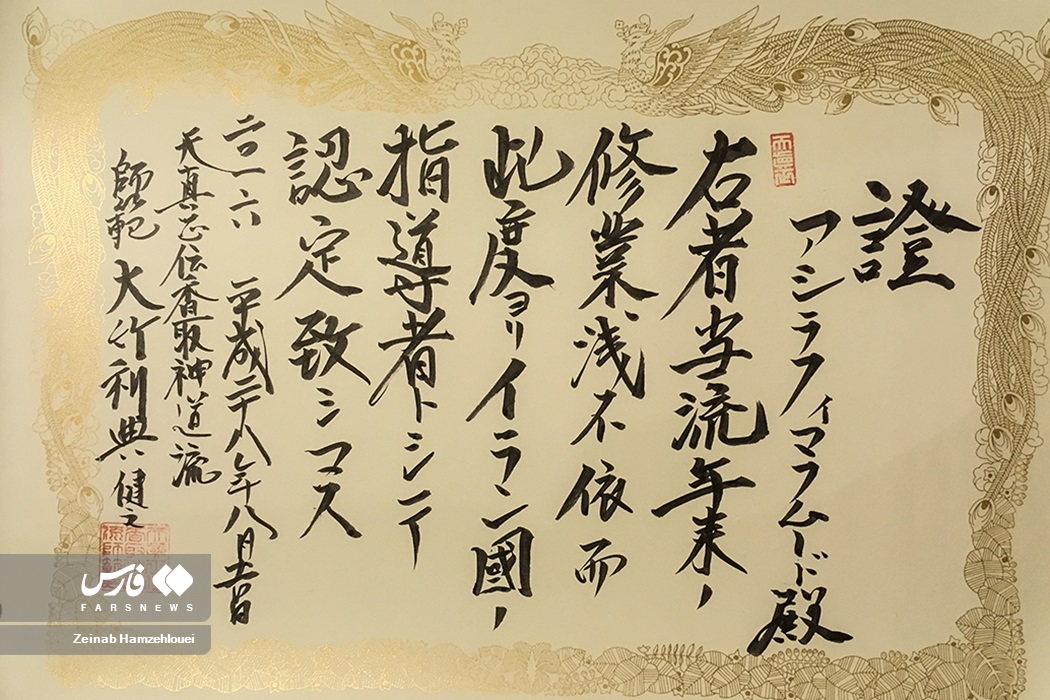 證
アシラフィマラムード殿
右者当流年来ノ
修業浅不依而
此度ヨリイラン國ノ
指導者トシテ
認定致シマス
二〇一六 平成二十八年八月吉日
天真正伝香取神道流
師範 大竹利典健之
فارس
FARSNEWS
Zeinab Hamzehlouei